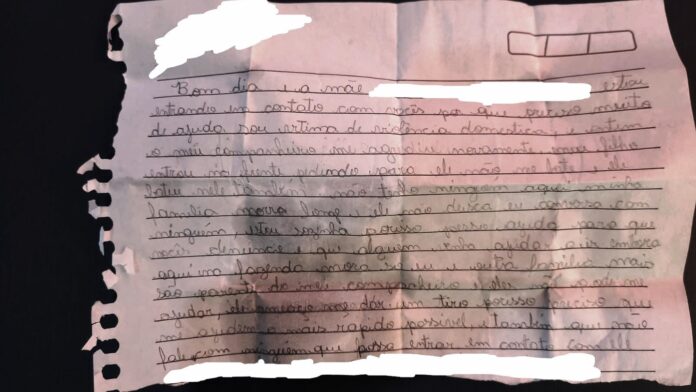 Bom dia e a mãe estou
entrando em contato com vocês por que preciso muito
de ajuda sou vitima de violência domestica, e ontem
o meu companheiro me agrediu novamente meu filho
entrou na frente pedindo para ele não me bate e ele
bateu nele também não tenho ninguem aqui minha
familia morra longe e ele não deixa eu conversa com
ninguem, estou sozinha posso ajuda para que
vocês denuncie e que alguem venha ajudar a ir embora
aqui na fazenda mora so eu e outra familia mais
são parente do meu companheiro e eles não vão me
ajudar, ele ameaça me dár um tiro preciso que
me ajudem o mais rápido possivel, e tambem que não
falem com ninguem que possa entrar em contato com ele